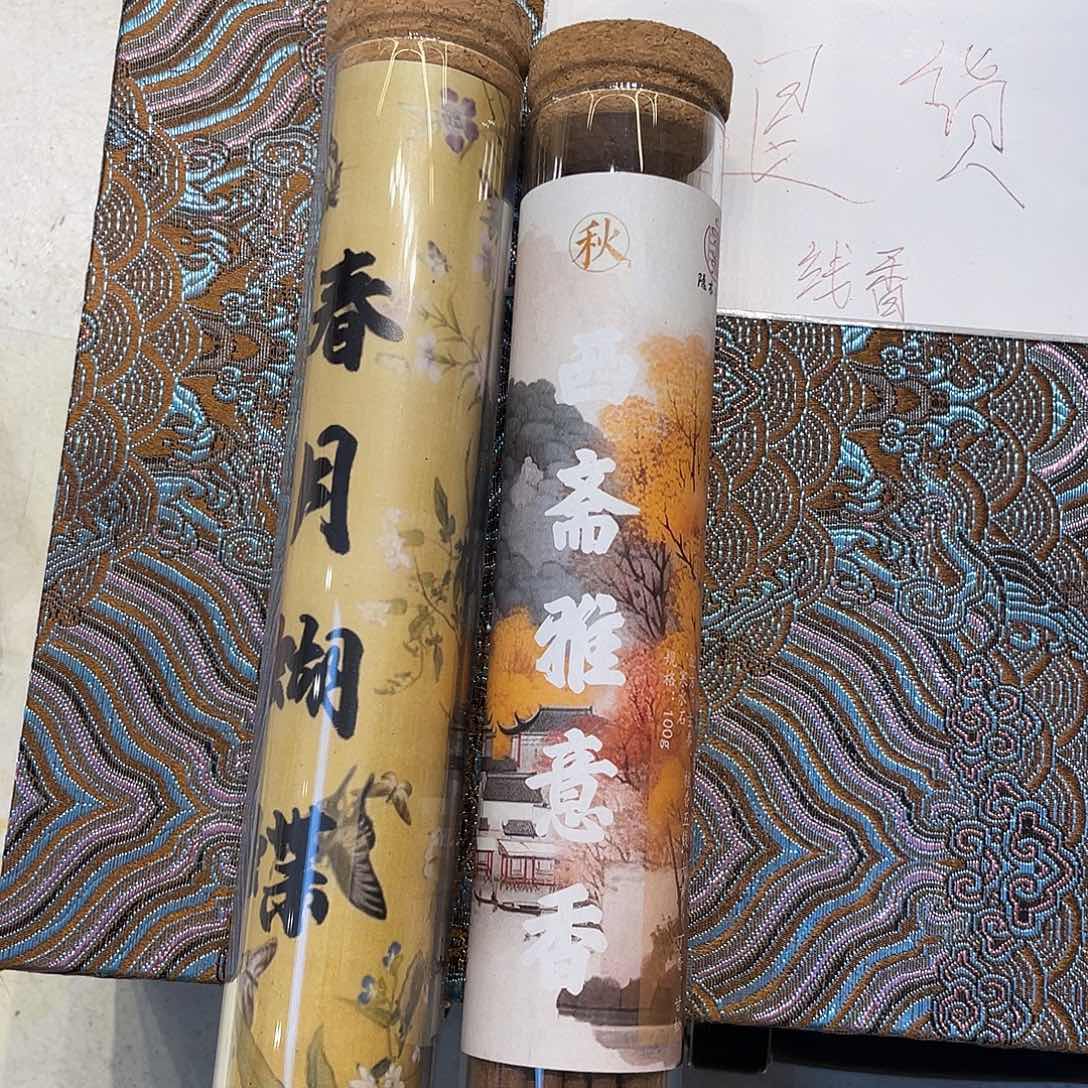 春月蝴蝶
秋
西斋雅意香
规格：100g
退货
线香